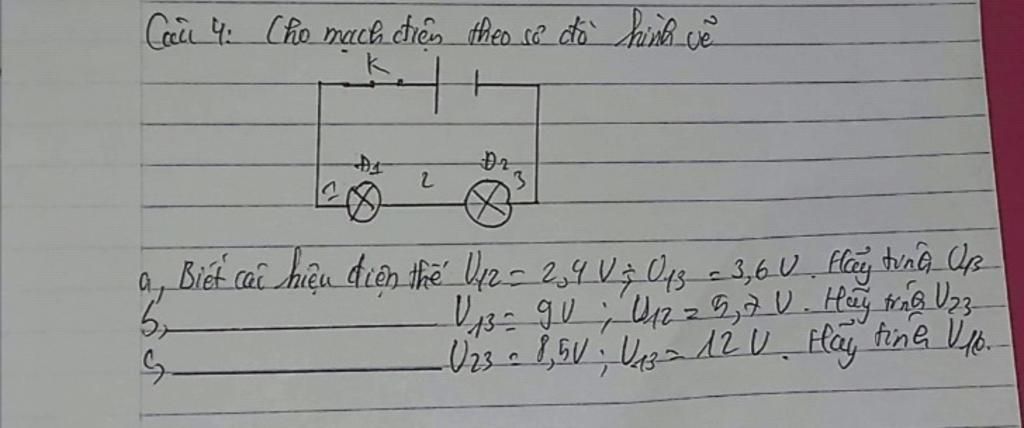 Câu 4: Cho mạch điện theo sơ đồ hình vẽ
K
Đ1 2 Đ2
1 3
a, Biết các hiệu điện thế U12 = 2,4 V; U13 = 3,6 V. Hãy tính U13
b, U13 = 9V ; U12 = 5,7 V. Hãy tính U23
c, U23 = 8,5V ; U13 = 12 V. Hãy tính